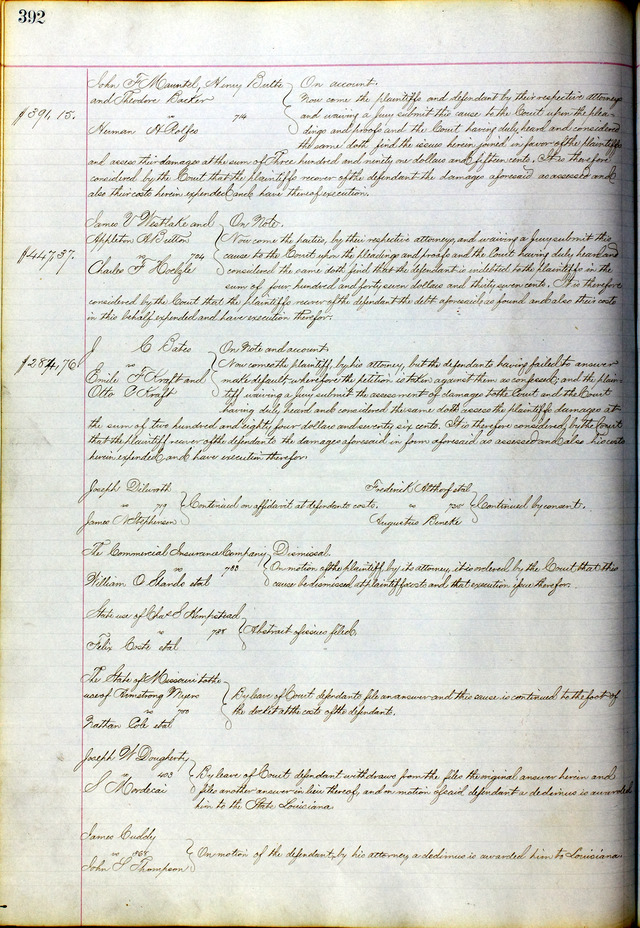 392
John F Mauntel, Henry Buthe
and Theodore Backer
vs 714
Herman H Rolfes
$391,15.
On account.
Now come the plaintiffs and defendant by their respective attorneys
and waiving a jury submit this cause to the Court upon the plea-
dings and proofs and the Court having duly heard and considered
the same doth find the issues herein joined in favor of the plaintiffs
and assess their damages at the sum of Three hundred and ninety one dollars and fifteen cents. It is therefore
considered by the Court that the plaintiffs recover of the defendant the damages aforesaid as assessed and
also their costs herein expended and have thereof execution.
James V Westlake and
Appleton R Button
vs 724
Charles F
$447,37.
On Note.
Now come the parties, by their respective attorneys, and waiving a jury submit this
cause to the Court upon the pleadings and proofs and the Court having duly heard and
considered the same doth find that the defendant is indebted to the plaintiffs in the
sum of four hundred and forty seven dollars and thirty seven cents. It is therefore
considered by the Court that the plaintiffs recover of the defendant the debt aforesaid, as found and also their costs
in this behalf expended and have execution therefor.
J C Bates
vs
Emile F Kraft and
Otto Kraft
$284,76
On Note and account.
Now comes the plaintiff, by his attorney, but the defendants having failed to answer
make default; wherefore the petition is taken against them as confessed; and the plain-
tiff waiving a jury submit the assessment of damages to the Court and the Court
having duly heard and considered the same doth assess the plaintiffs damages at
the sum of two hundred and eighty four dollars and seventy six cents. It is therefore considered by the Court
that the plaintiff recover of the defendants the damages aforesaid in form aforesaid as assessed and also his costs
herein expended and have execution therefor.
Joseph Dilworth
vs 719
James N Stephenson
Continued on affidavit at defendants costs.
Frederick Althof et al
vs 735
Augustus Beneke
Continued by consent.
The Commercial Insurance Company
vs 783
William O et al
Dismissal.
On motion of the plaintiff by its attorney, it is ordered by the Court that this
cause be dismissed at plaintiffs costs and that execution issue therefor.
State use of Chas S Hempstead
vs 788
Felix Coste et al
Abstract of issues filed.
The State of Missouri to the
use of Armstrong Myers
vs 700
Nathan Cole et al
By leave of Court defendants file an answer and this cause is continued to the foot of
the docket at the costs of the defendants.
Joseph W Dougherty
vs 403
S Mordecai
By leave of Court defendant withdraws from the files the original answer herein and
files another answer in lieu thereof, and on motion of said defendant a dedimus is awarded
him to the State Louisiana
James Cuddy
vs
John S Thompson
On motion of the defendant, by his attorney a dedimus is awarded him to Louisiana